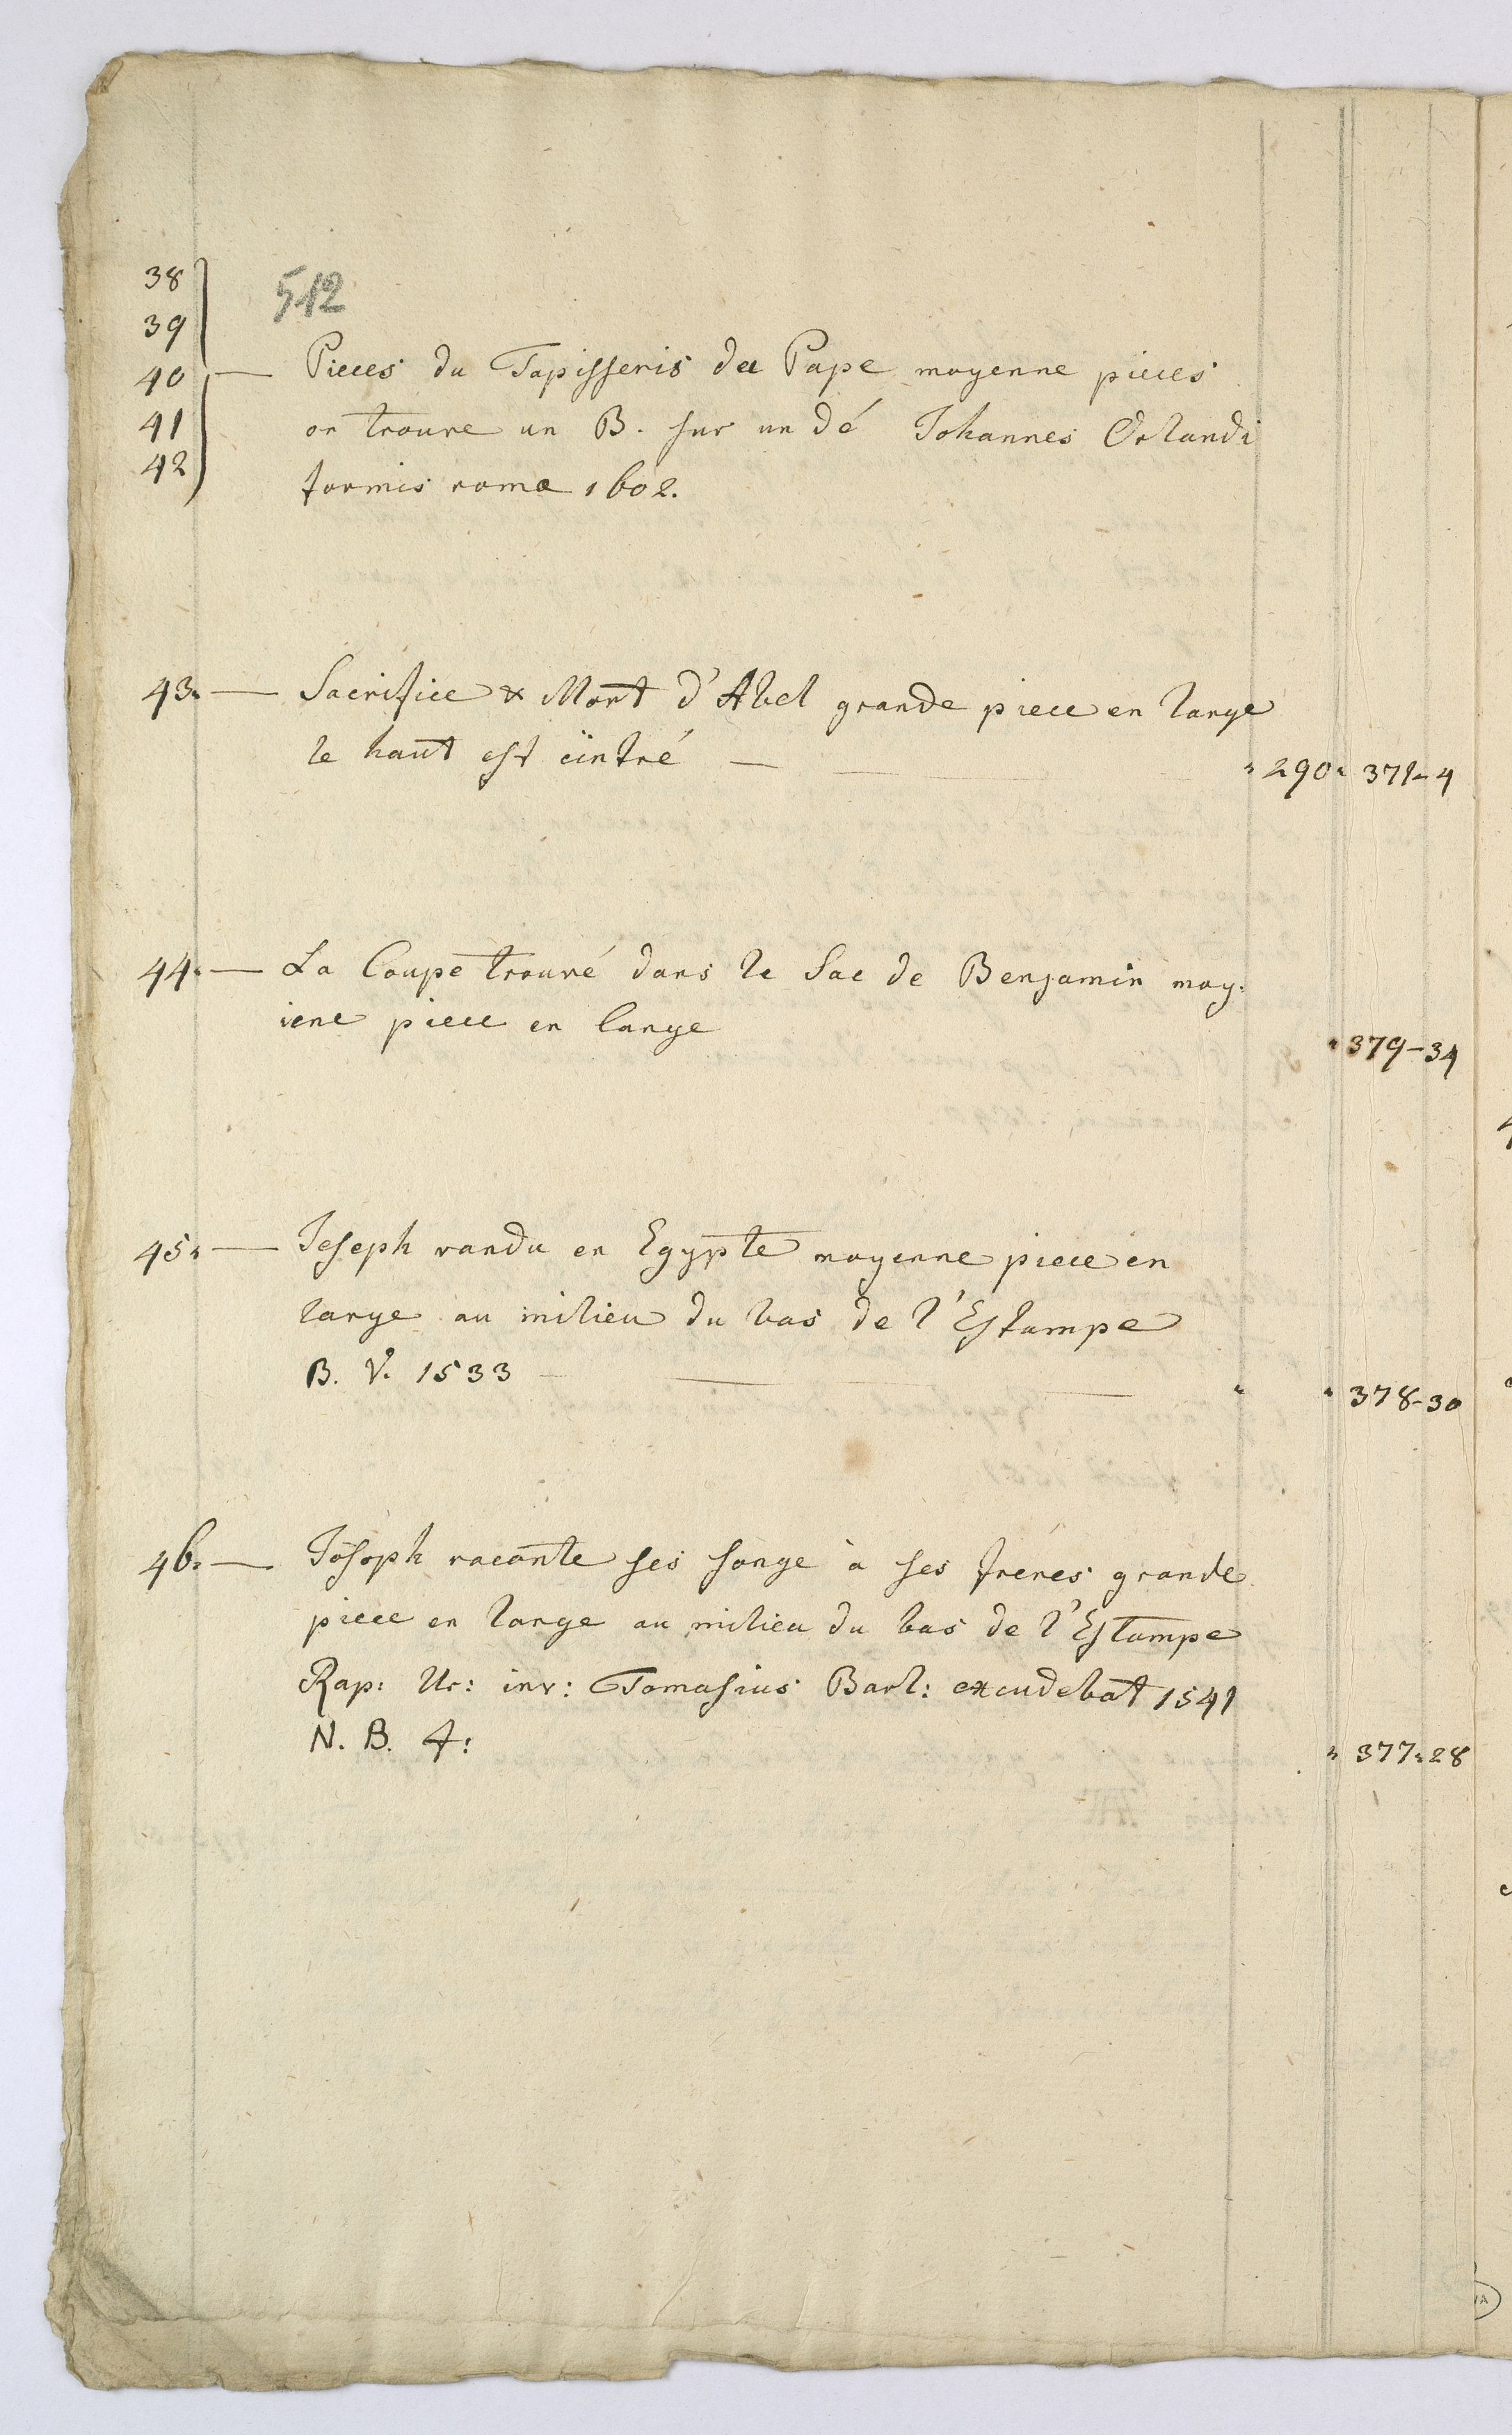 512
38
39
40 — Pieces du Tapisseris du Pape moyenne pieces
41 on trouve un B. sur un dé Johannes Orlandi
42 formis roma 1602.
43. — Sacrifice & Mort d'Abel grande piece en large
le haut est cintré — 290. 371-4
44. — La Coupe trouvé dans le Sac de Benjamin moy:
iene piece en large
379-34
45. — Joseph vandu en Egypte moyenne piece en
large au milieu du bas de l'Estampe
B. V. 1533 — 378-30
46. — Joseph raconte ses songe à ses freres grande
piece en large au milieu du bas de l'Estampe
Rap: Ur: inv: Tomasius Barl: excudebat 1541
N. B. F: 377-28